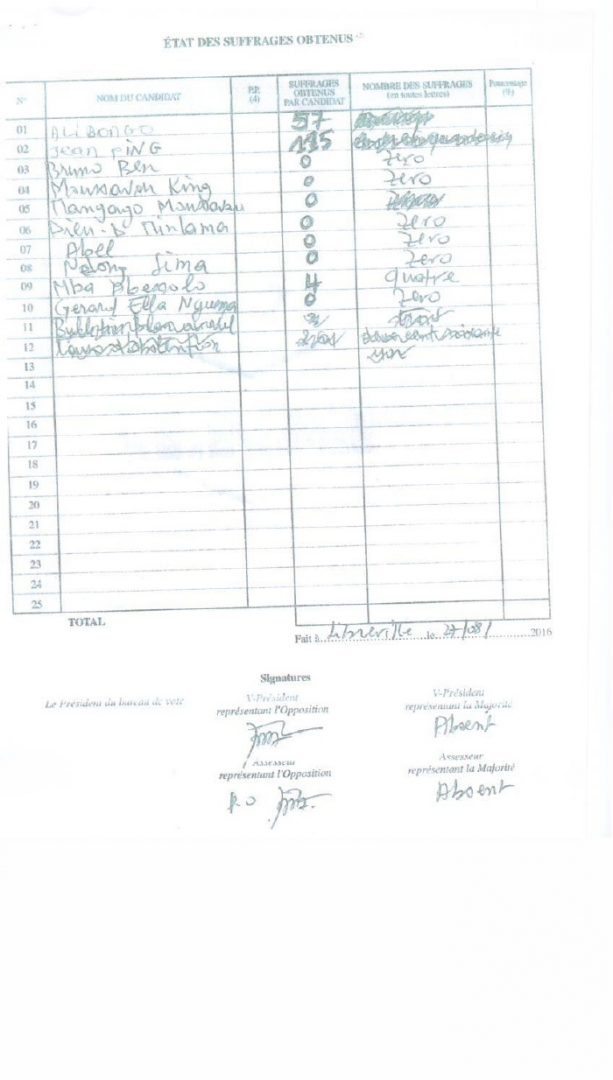 ÉTAT DES SUFFRAGES OBTENUS
N° NOM DU CANDIDAT P.P. (4) SUFFRAGES OBTENUS PAR CANDIDAT NOMBRE DES SUFFRAGES (en toutes lettres) Pourcentage (%)
01 ALI BONGO 57
02 Jean PING 115
03 Bruno Ben 0 Zero
04 Moussavou King 0 Zero
05 0
06 0 Zero
07 Abel 0 Zero
08 Ndong Sima 0 Zero
09 Mba 4 quatre
10 Gerard Ella Nguema 0 Zero
11
12
13
14
15
16
17
18
19
20
21
22
23
24
25
TOTAL
Fait à Libreville le 27/08/ 2016
Signatures
Le Président du bureau de vote
V-Président
représentant l'Opposition
V-Président
représentant la Majorité
Absent
Assesseur
représentant l'Opposition
P.O
Assesseur
représentant la Majorité
Absent